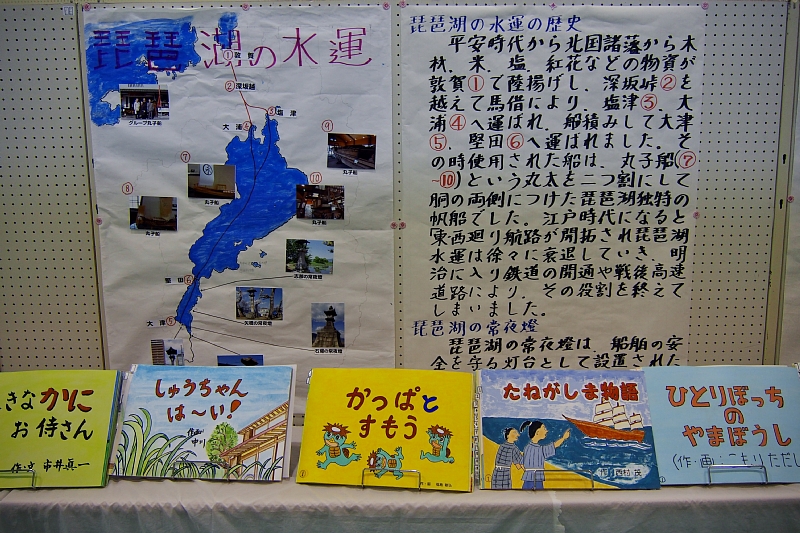 琵琶湖の水運
①敦賀
②深坂越
③塩津
大浦④
グループ丸子船
⑦
丸子船
⑧
丸子船
⑨
丸子船
⑩
丸子船
堅田⑥
大津⑤
矢橋の常夜燈
石場の常夜燈
琵琶湖の水運の歴史
平安時代から北国諸藩から木
材、米、塩、紅花などの物資が
敦賀①で陸揚げし、深坂峠②を
越えて馬借により、塩津③、大
浦④へ運ばれ、船積みして大津
⑤、堅田⑥へ運ばれました。そ
の時使用された船は、丸子船(⑦
-⑩)という丸太を二つ割にして
胴の両側につけた琵琶湖独特の
帆船でした。江戸時代になると
東西廻り航路が開拓され琵琶湖
水運は徐々に衰退していき、明
治に入り鉄道の開通や戦後高速
道路により、その役割を終えて
しまいました。
琵琶湖の常夜燈
琵琶湖の常夜燈は、船舶の安
全を守る灯台として設置された
きなかに
お侍さん
作・文 市井眞一
しゅうちゃん
は〜い!
かっぱと
すもう
たねがしま物語
西村茂
ひとりぼっち
の
やまぼうし
(作・画:こもりただし